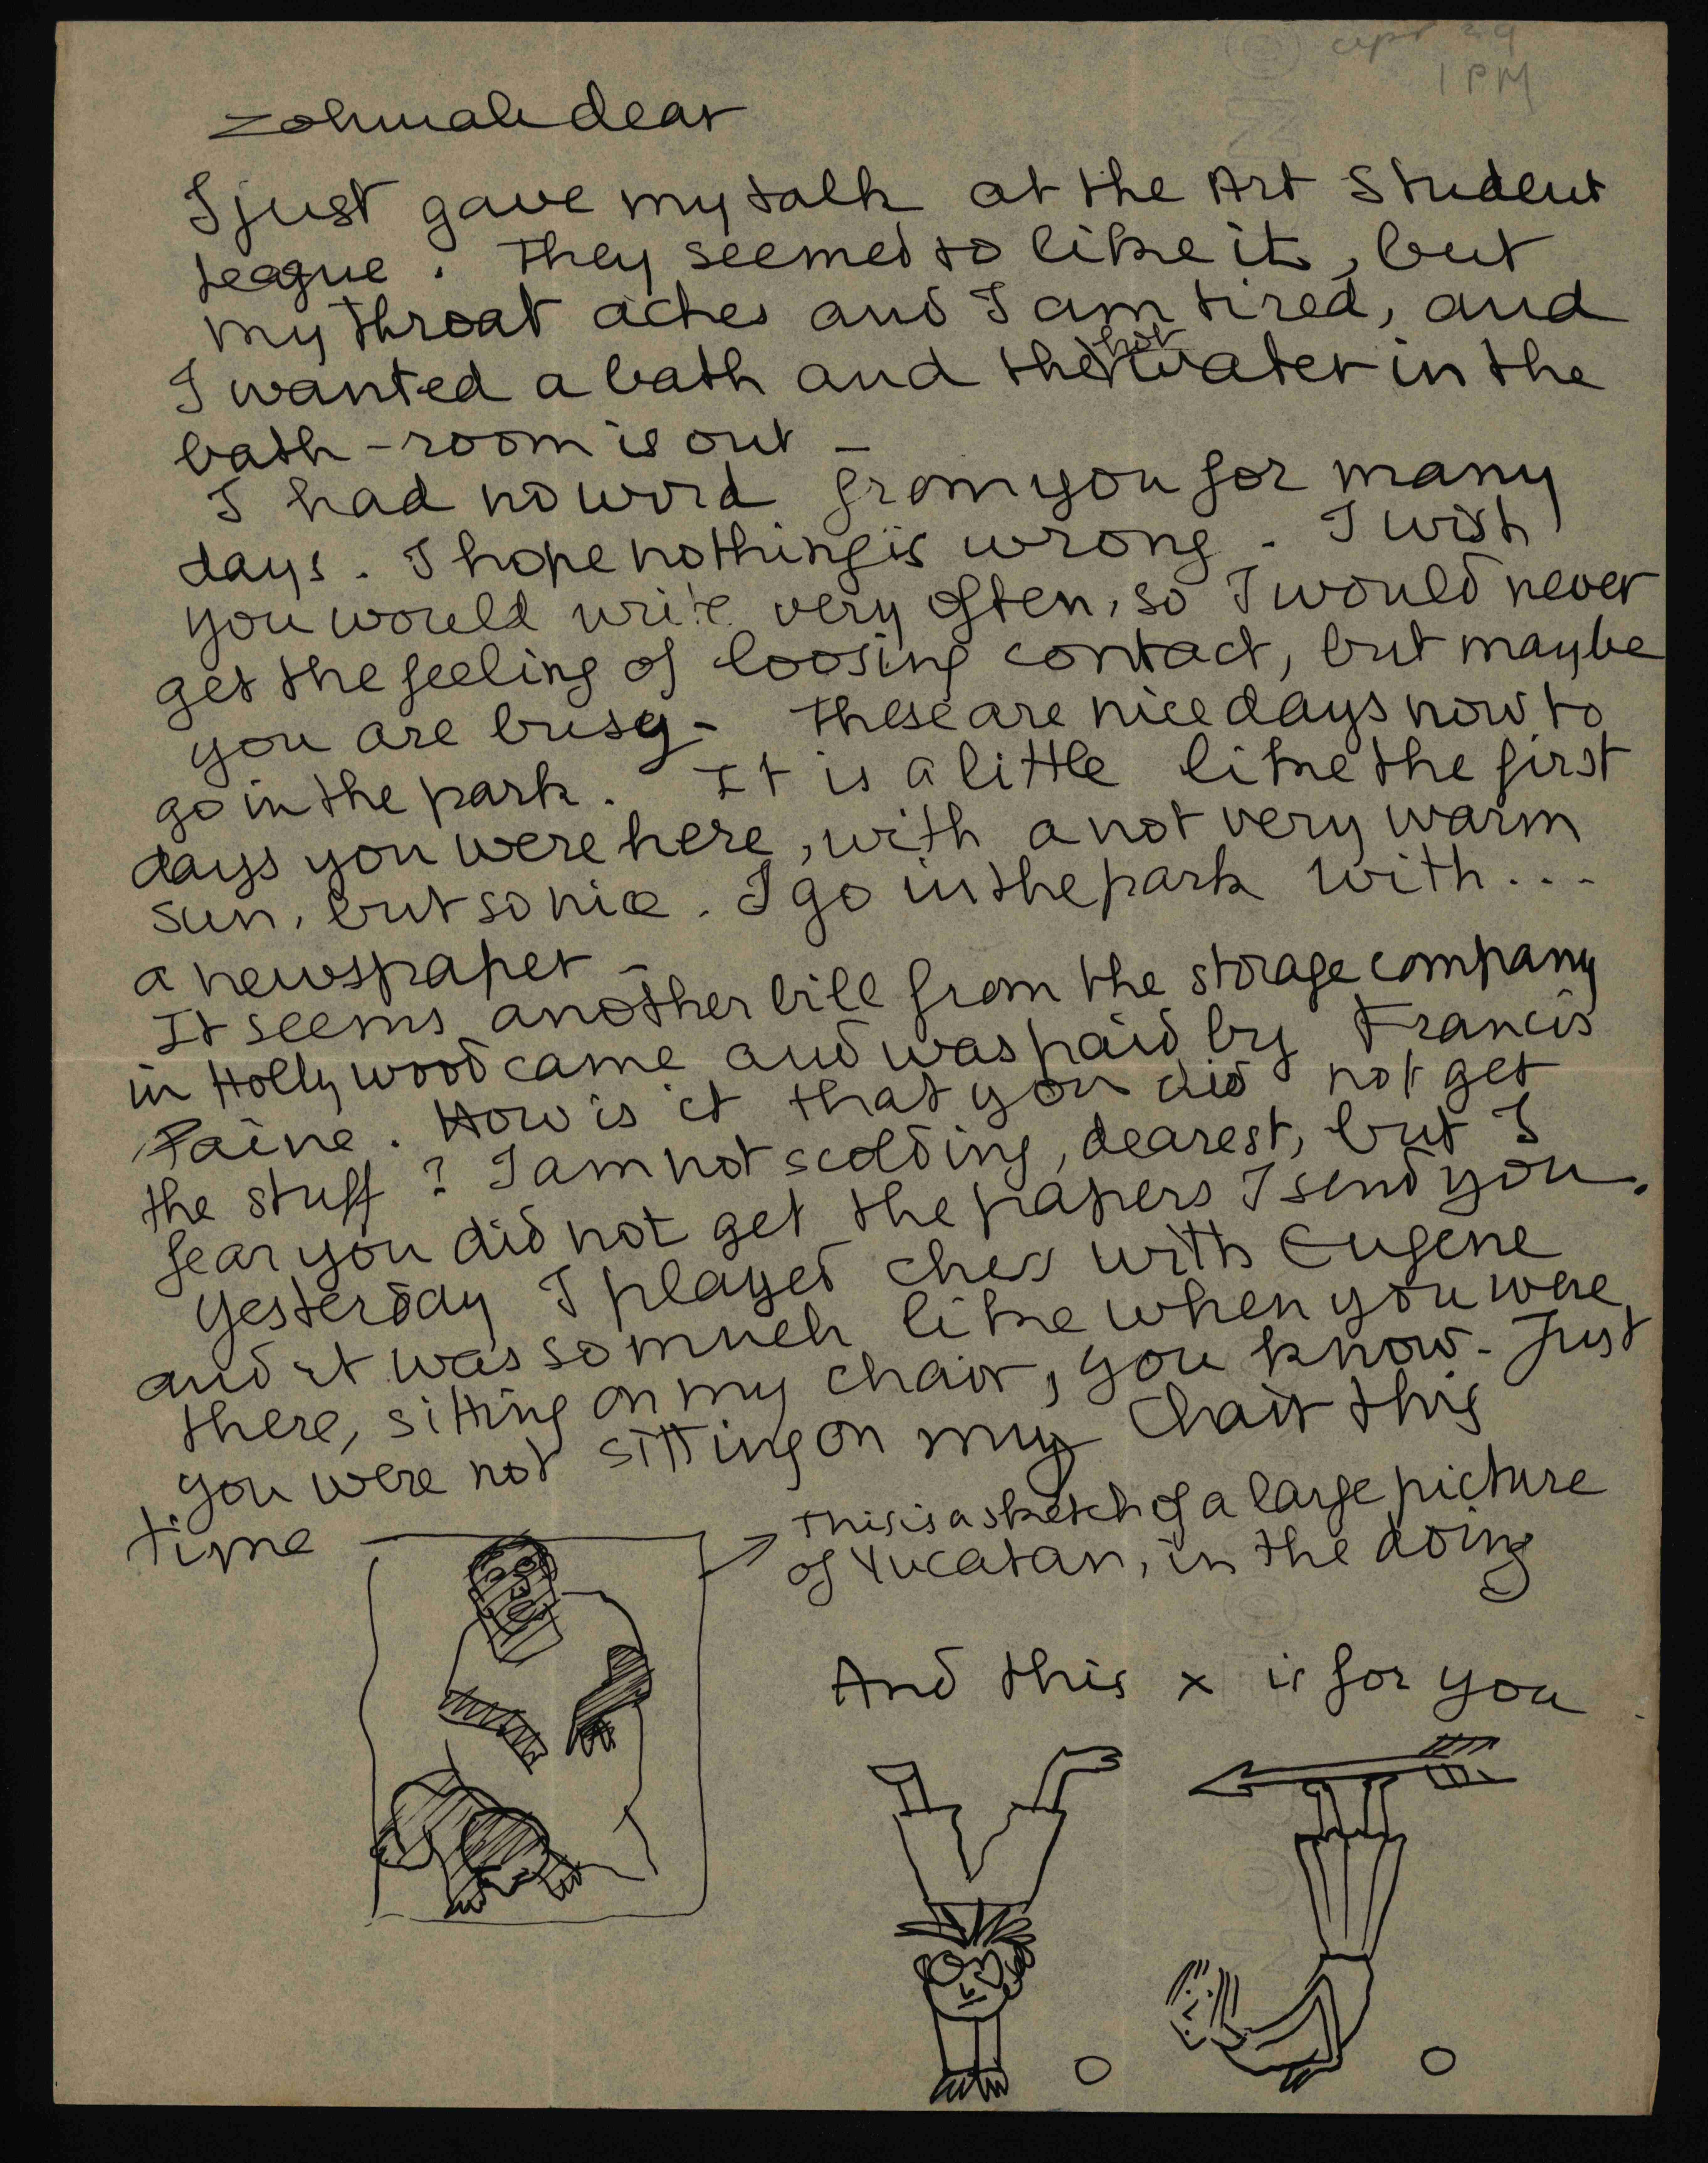 apr 29
1 PM
zohmah dear
I just gave my talk at the Art Student
League. They seemed to like it, but
my throat aches and I am tired, and
I wanted a bath and the hot water in the
bath-room is out -
I had no word from you for many
days. I hope nothing is wrong. I wish
you would write very often, so I would never
get the feeling of loosing contact, but maybe
you are busy - These are nice days now to
go in the park. It is a little like the first
days you were here, with a not very warm
sun, but so nice. I go in the park with ...
a newspaper -
It seems another bill from the storage company
in Hollywood came and was paid by Francis
Paine. How is it that you did not get
the stuff? I am not scolding, dearest, but I
fear you did not get the papers I send you.
Yesterday I played chess with Eugene
and it was so much like when you were
there, sitting on my chair, you know - Just
you were not sitting on my chair this
time
This is a sketch of a large picture
of Yucatan, in the doing
And this x is for you